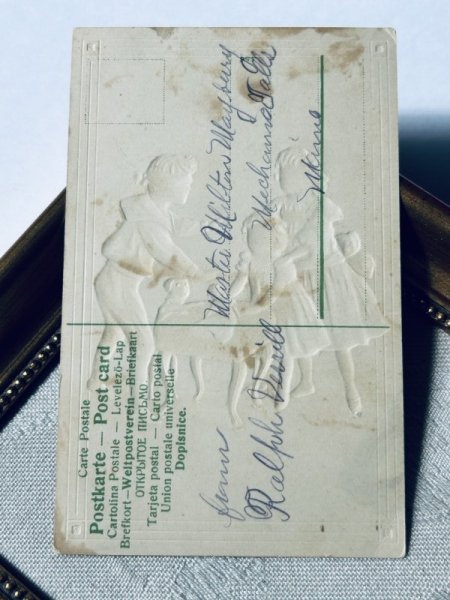 Carte Postale
Postkarte — Post card
Cartolina Postale — Levelezö-Lap
Brefkort—Weltpostverein—Briefkaart
ОТКРЫТОЕ ПИСЬМО.
Tarjeta postal — Carto postal
Union postale universelle
Dopisnice.
from
Ralph
Master Milton Maybury
Mechanic Falls
Maine